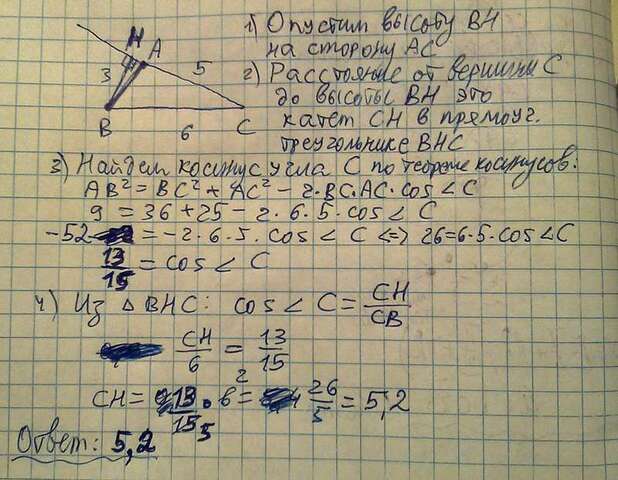 H
A
3
5
B
6
C
1) Опустим высоту BH
на сторону AC
2) Расстояние от вершины C
до высоты BH это
катет CH в прямоуг.
треугольнике BHC
3) Найдем косинус угла C по теореме косинусов:
AB² = BC² + AC² - 2·BC·AC·cos∠C
9 = 36 + 25 - 2·6·5·cos∠C
-52 = -2·6·5·cos∠C <=> 26=6·5·cos∠C
13/15 = cos∠C
4) Из △BHC: cos∠C = CH/CB
CH/6 = 13/15
CH = 13/15 · 6 = 26/5 = 5,2
2
5
Ответ: 5,2